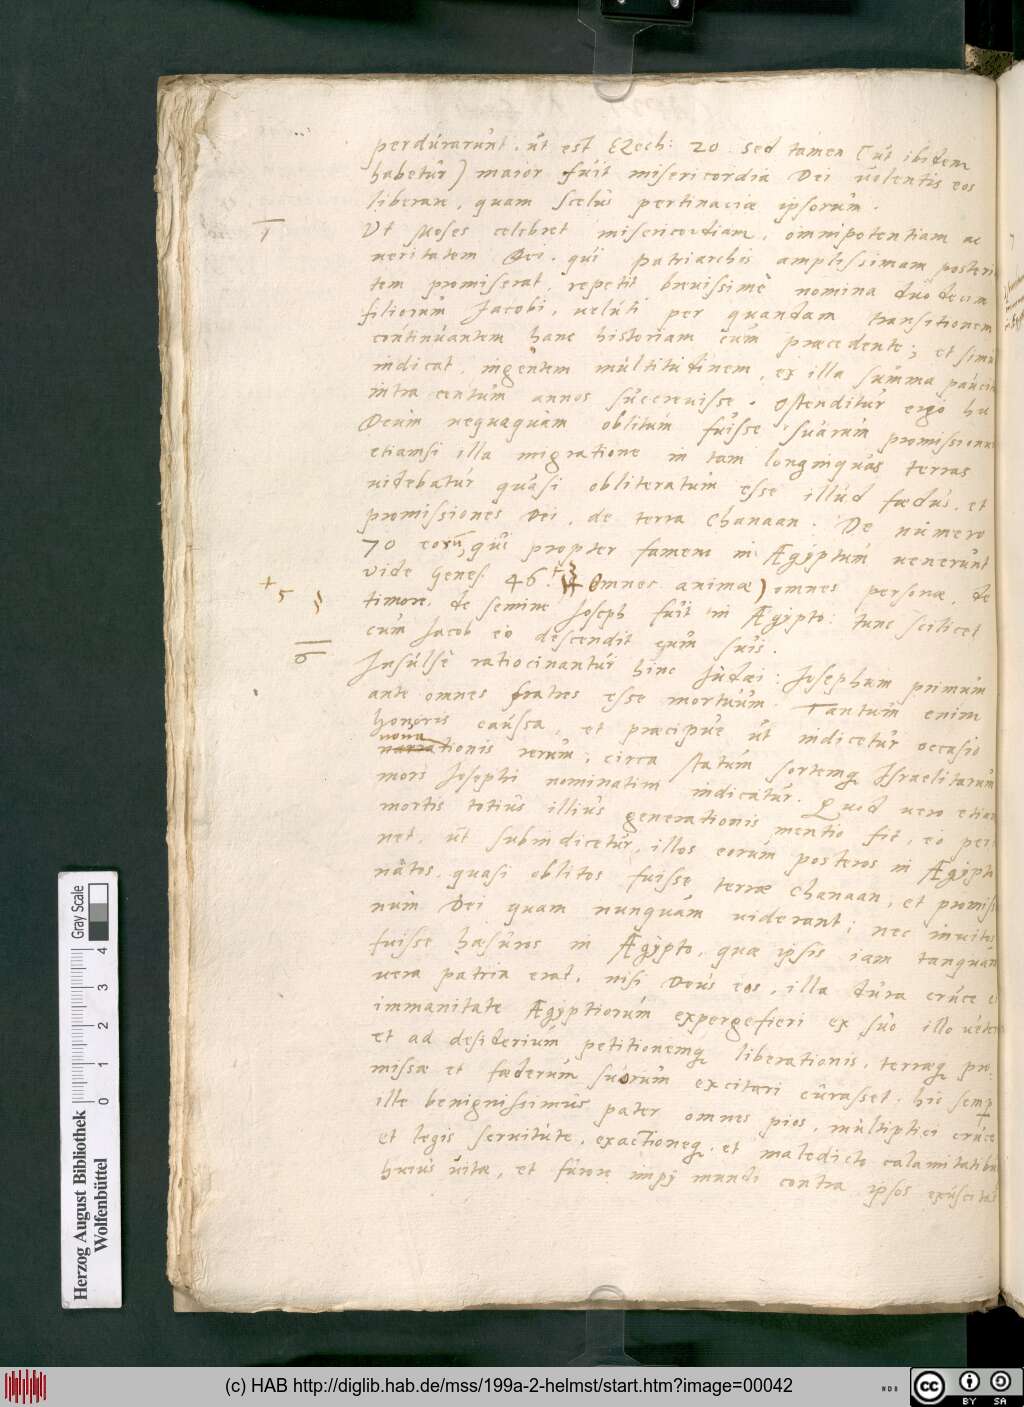 perdurarunt, ut est Ezech: 20. sed tamen (ut ibidem
habetur) maior fuit misericordia Dei volentis eos
liberare, quam scelus pertinaciæ ipsorum.
1
Ut Moses celebret misericordiam, omnipotentiam ac
veritatem Dei, qui Patriarchis amplissimam posteri
tem promiserat, repetit brevissimè nomina duodecim
filiorum Jacobi, veluti per quandam transitionem
continuantem hanc historiam cum præcedente; et simul
indicat, ingentem multitudinem, ex illa summa pauci
intra centum annos succrevisse. Ostenditur ergo hu
Deum nequaquàm oblitum fuisse suarum promissionu
etiamsi illa migratione in tam longinquas terras
videbatur quasi obliteratum esse illud fœdus, et
promissiones Dei, de terra Chanaan. De numero
70 eorum, qui propter famem in Ægyptum venerunt
vide Genes. 46.
Omnes animæ) omnes personæ, de
+ 5
timore, de semine Joseph fuit in Ægypto: tunc scilicet
cum Jacob eò descendit cum suis.
6
Insulsè ratiocinantur hinc Judæi: Josephum primum
ante omnes fratres esse mortuum. Tantum enim
honoris caussa, et præcipue ut indicetur occasio
nova
narrationis rerum, circa statum sortemq Israelitarum
mors Josephi nominatim indicatur. Quod vero etiam
mortis totius illius generationis mentio fit, eò per
net, ut subindicetur, illos eorum posteros in Ægypto
nâtos, quasi oblitos fuisse terræ Chanaan, et promiss
num Dei quam nunquam viderant; nec invitos
fuisse hæsuros in Ægypto, quæ ipsis iam tanquam
vera patria erat, nisi Deus eos, illa dura cruce e
immanitate Ægyptiorum expergefieri ex suo illo vete
et ad desiderium petitionemq liberationis, terræq pro
missæ et fœderum suorum excitari curasset. hic semp
ille benignissimus pater omnes pios, multiplici cruce
et legis servitute, exactioneq, et maledicto calamitatibu
huius vitæ, et furore impÿ mundi contra ipsos exuscitat
Herzog August Bibliothek
Wolfenbüttel
0 1 2 3 4
Gray Scale
(c) HAB http://diglib.hab.de/mss/199a-2-helmst/start.htm?image=00042
cc BY SA